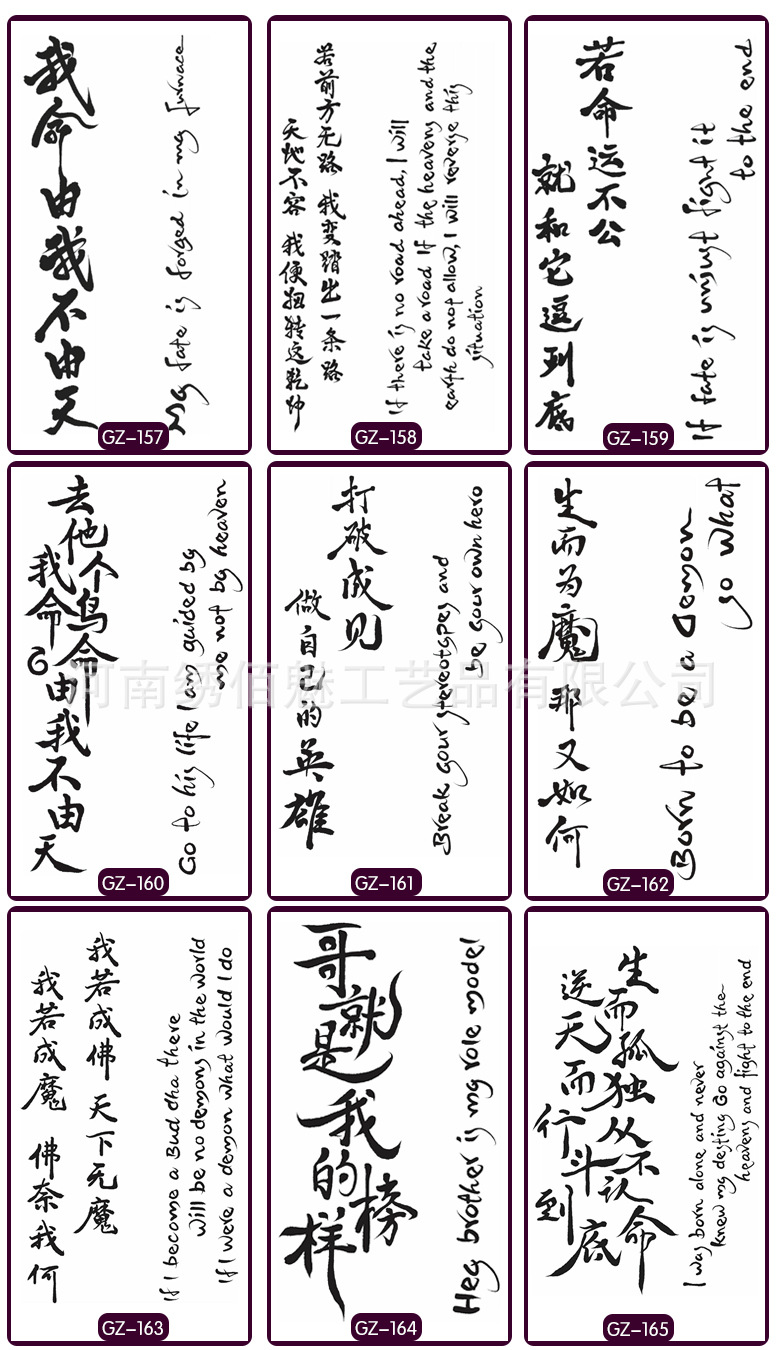 我命由我不由天
My fate is forged in my furnace
GZ-157
若前方无路 我变踏出一条路
天地不容 我便扭转这乾坤
If there is no road ahead, I will
take a road If the heavens and the
earth do not allow, I will reverse this
situation
GZ-158
若命运不公
就和它逗到底
If fate is unjust fight it
to the end
GZ-159
去他个鸟命
我命。由我不由天
Go to his life I am guided by
me not by heaven
GZ-160
打破成见
做自己的英雄
Break your stereotypes and
be your own hero
GZ-161
生而为魔 那又如何
Born to be a Demon
so what
GZ-162
河南绣佰魅工艺品有限公司
我若成佛 天下无魔
我若成魔 佛奈我何
If I become a Buddha there
will be no demons in the world
If I were a demon what would I do
GZ-163
哥就是我的榜样
Hey brother is my role model
GZ-164
生而孤独从不认命
逆天而行斗到底
I was born alone and never
knew my destiny Go against the
heavens and fight to the end
GZ-165